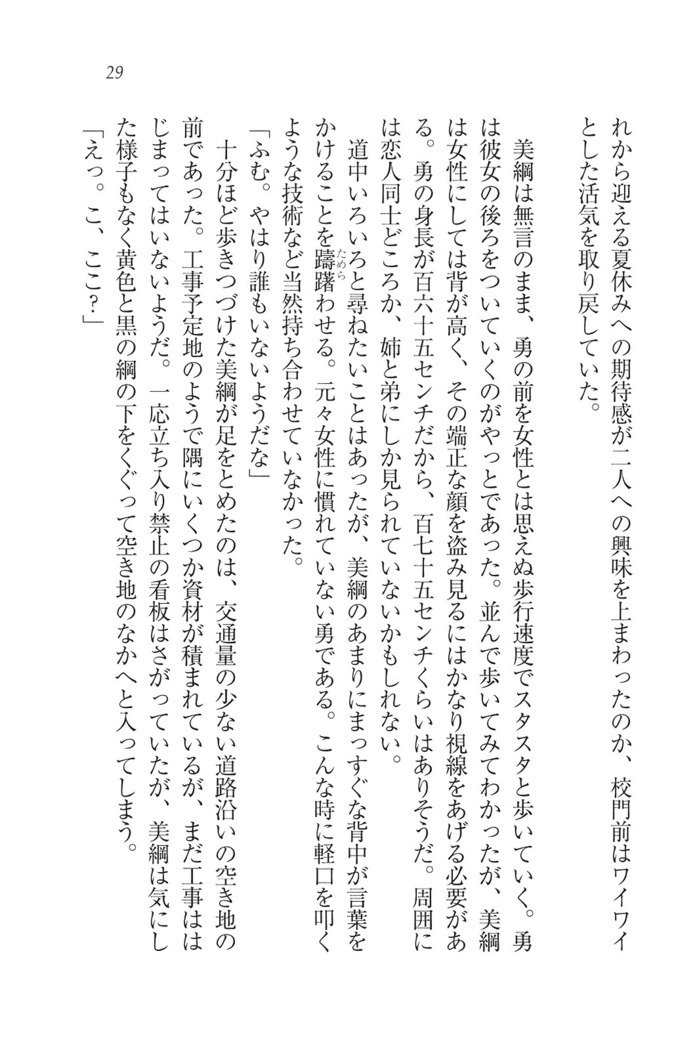 29
れから迎える夏休みへの期待感が二人への興味を上まわったのか、校門前はワイワイ
とした活気を取り戻していた。
美綱は無言のまま、勇の前を女性とは思えぬ歩行速度でスタスタと歩いていく。勇
は彼女の後ろをついていくのがやっとであった。並んで歩いてみてわかったが、美綱
は女性にしては背が高く、その端正な顔を盗み見るにはかなり視線をあげる必要があ
る。勇の身長が百六十五センチだから、百七十五センチくらいはありそうだ。周囲に
は恋人同士どころか、姉と弟にしか見られていないかもしれない。
道中いろいろと尋ねたいことはあったが、美綱のあまりにまっすぐな背中が言葉を
かけることを躊躇わせる。元々女性に慣れていない勇である。こんな時に軽口を叩く
ような技術など当然持ち合わせていなかった。
「ふむ。やはり誰もいないようだな」
十分ほど歩きつづけた美綱が足をとめたのは、交通量の少ない道路沿いの空き地の
前であった。工事予定地のようで隅にいくつか資材が積まれているが、まだ工事はは
じまってはいないようだ。一応立ち入り禁止の看板はさがっていたが、美綱は気にし
た様子もなく黄色と黒の綱の下をくぐって空き地のなかへと入ってしまう。
「えっ。こ、ここ？」
ためら